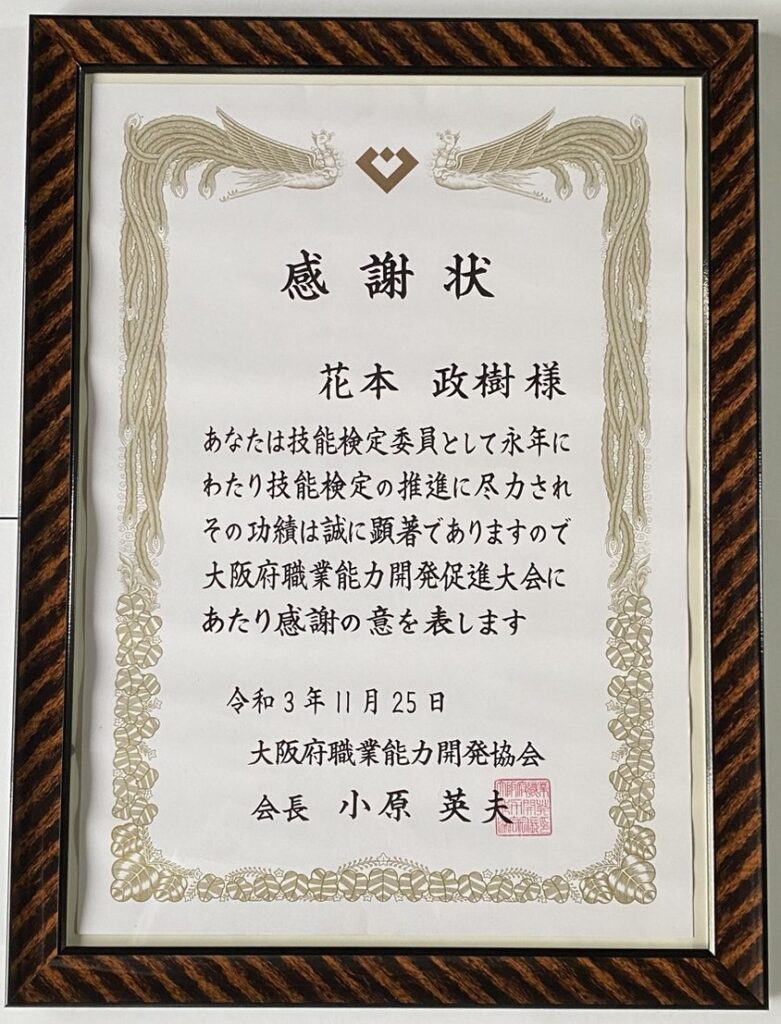 感謝状
花本 政樹様
あなたは技能検定委員として永年に
わたり技能検定の推進に尽力され
その功績は誠に顕著でありますので
大阪府職業能力開発促進大会に
あたり感謝の意を表します
令和3年11月25日
大阪府職業能力開発協会
会長 小原 英夫